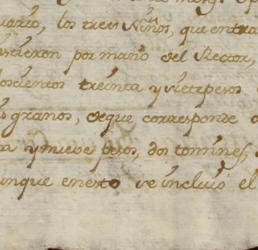 uario, los tres Niños, que entra
istieron por mano del Rector,
doscientos treinta y siete pesos
s granos, deque corresponde a
ta y nueve pesos, dos tomines,
unque enesto se incluió el